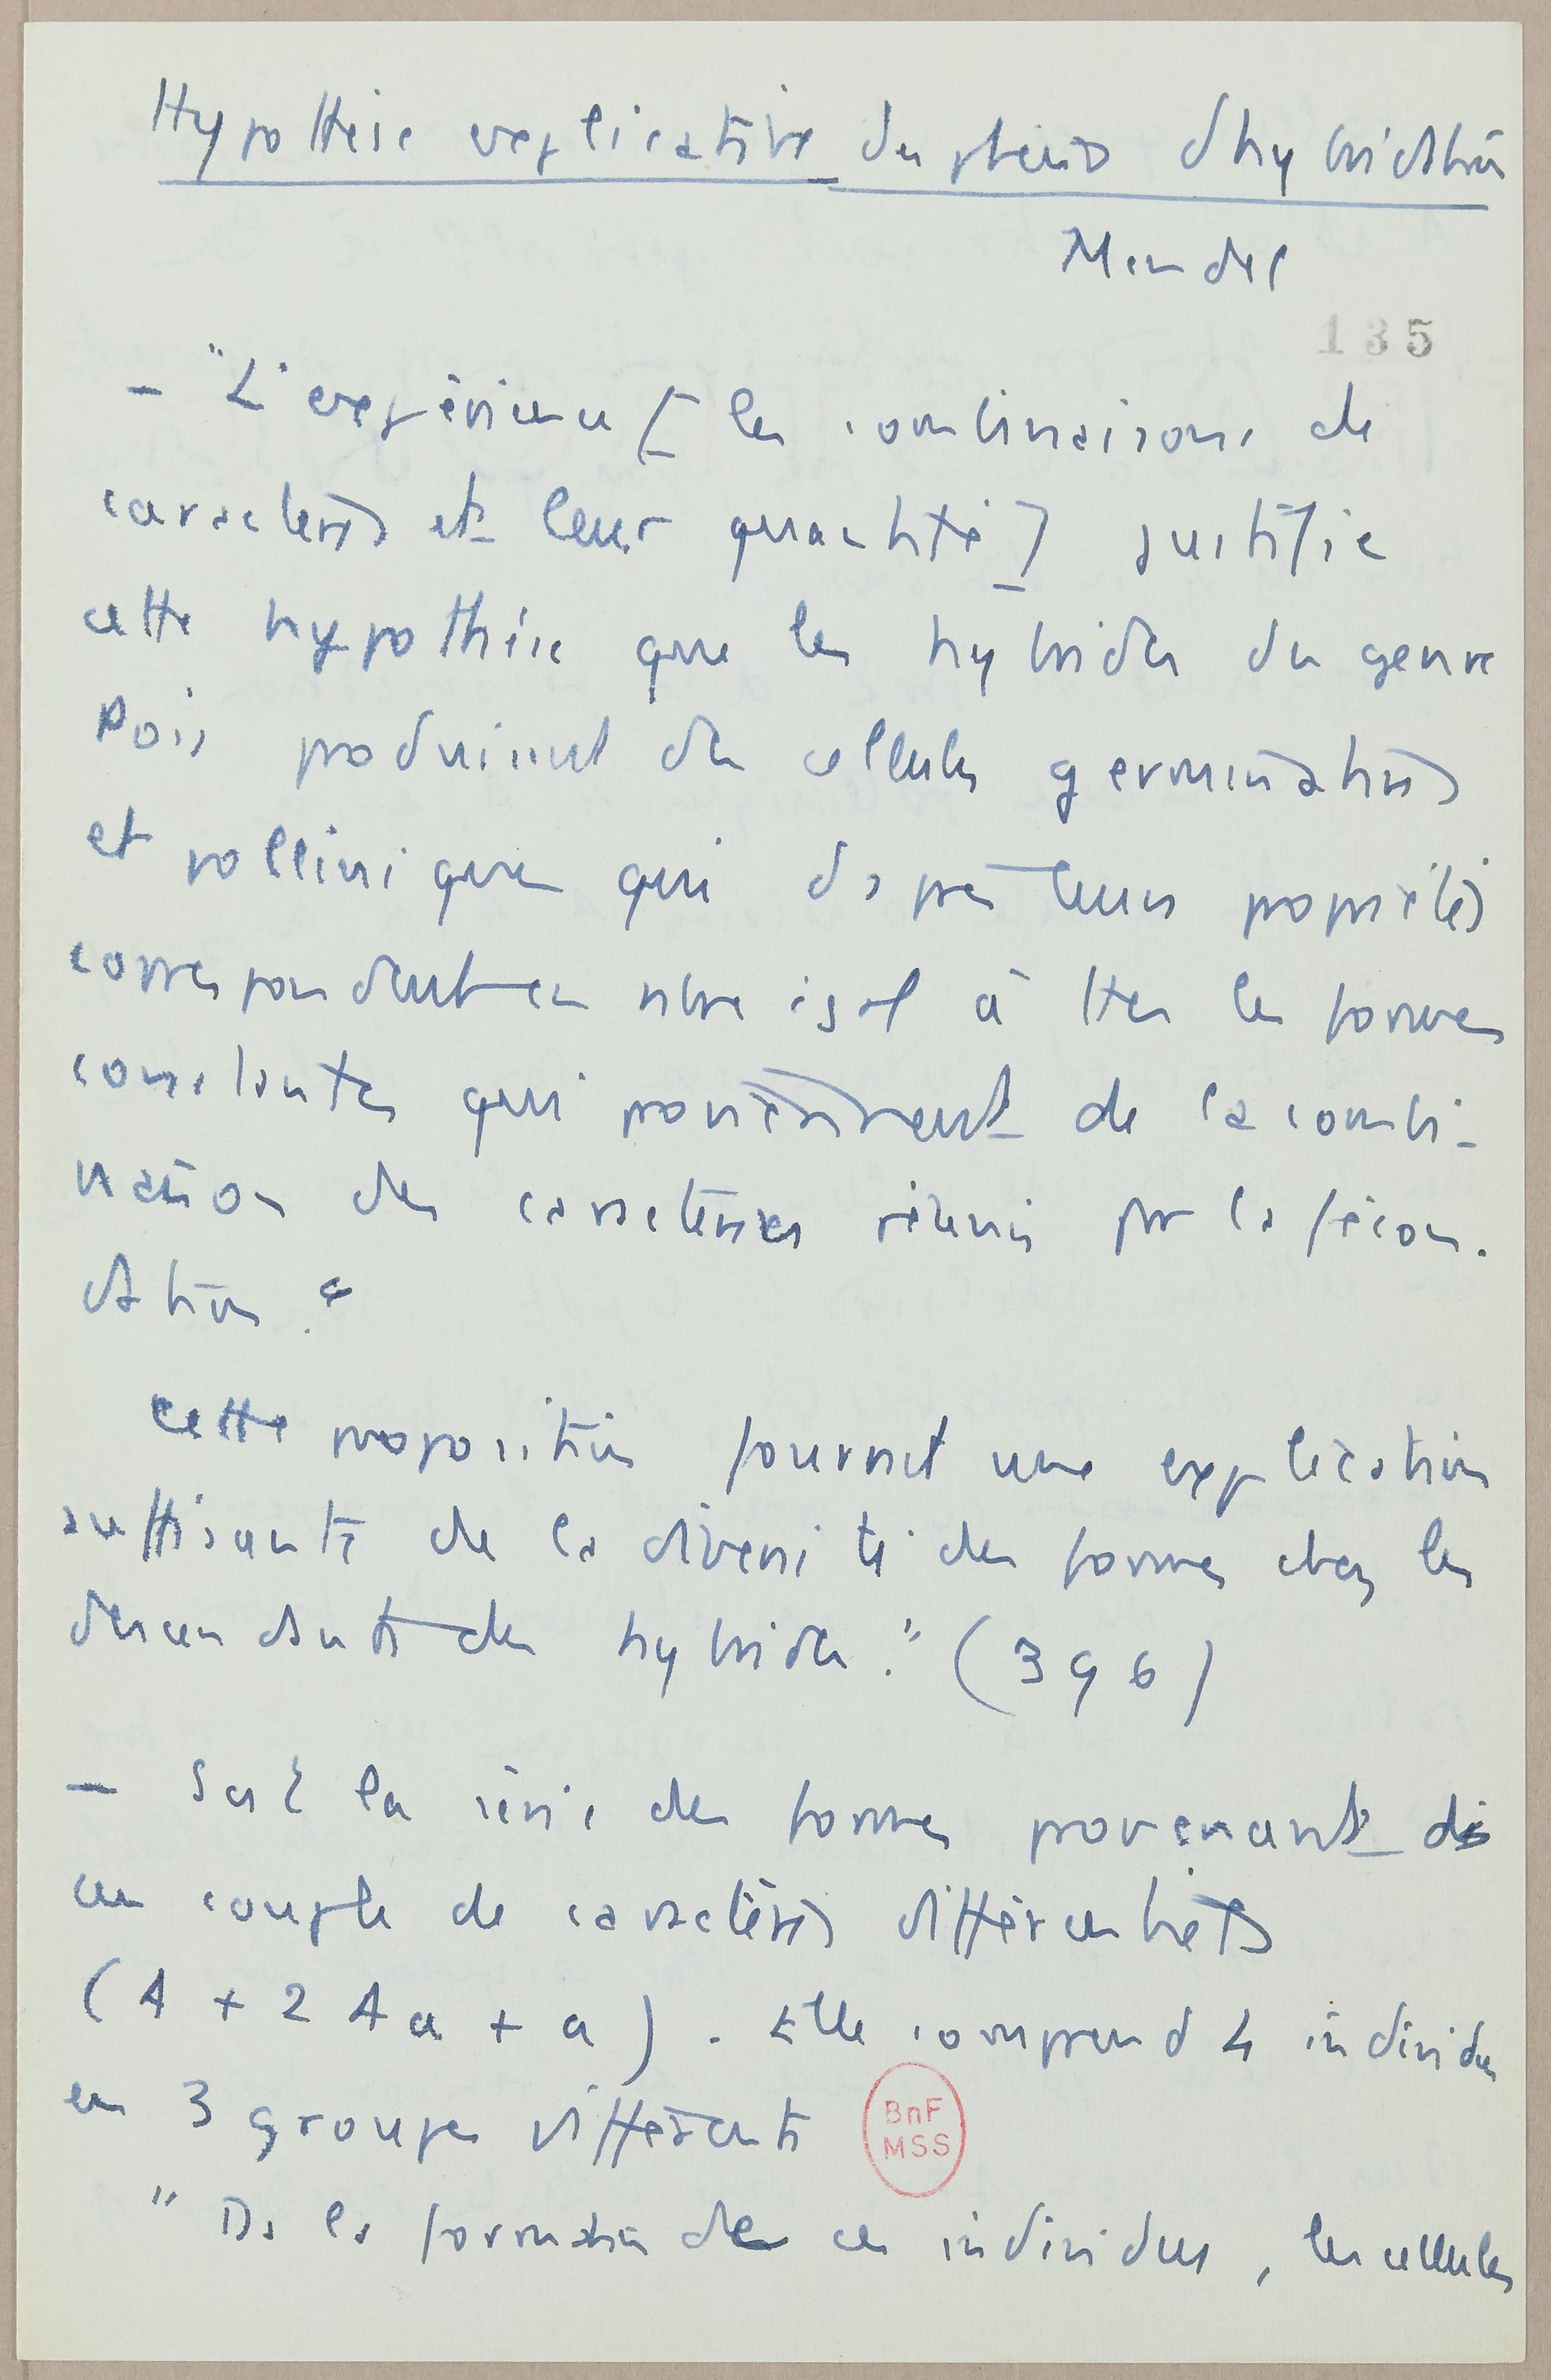 Hypothèse explicative du phéno d'hybridation
Mendel
135
- "L'expérience [les combinaisons de
caractères et leur quantité] justifie
cette hypothèse que les hybrides du genre
Pois produisent des cellules germinatives
et polliniques qui ds par leurs propriétés
correspondent en nbre égal à ttes les formes
constantes qui proviennent de la combi-
naison des caractères réunis par la fécon-
dation."
Cette proposition fournit une explication
suffisante de la diversité des formes chez les
descendants des hybrides." (396)
- Soit la série des formes provenant de
un couple de caractères différentiels
(A + 2 Aa + a). Elle comprend 4 individus
en 3 groupes différents
BnF
MSS
" Ds la formation de ces individus, les cellules